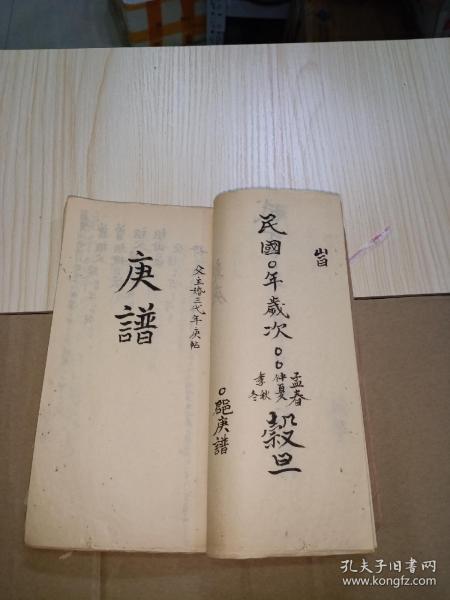 民國〇年歲次〇〇
孟春
仲夏
季秋
冬
榖旦
〇郒庚譜
父主婚三代年庚帖
庚譜
孔夫子旧书网
www.kongfz.com